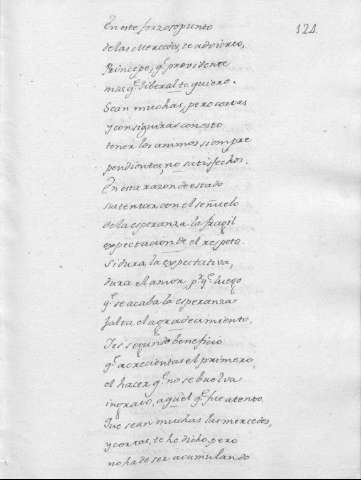 124.
En este forzoso punto
de las Mercedes, te advierto,
Principe, q.e providente
mas q.e liberal te quiero.
Sean muchas, pero cortas
y conseguiras con esto
tener los animos siempre
pendientes, no satisfechos.
En esta razon de estado
sustentar con el señuelo
de la esperanza la fragil
expectacion el respeto.
Si dura la expectativa,
dura el amor p.r q.e luego
q.e se acaba la esperanza
falta el agradecimiento.
Y es segundo beneficio
q.e acrecientas el primero,
el hacer q.e no se buelva
ingrato, aquel q.e fue atento.
Que sean muchas las mercedes,
y cortas, te he dicho, pero
no ha de ser acumulando